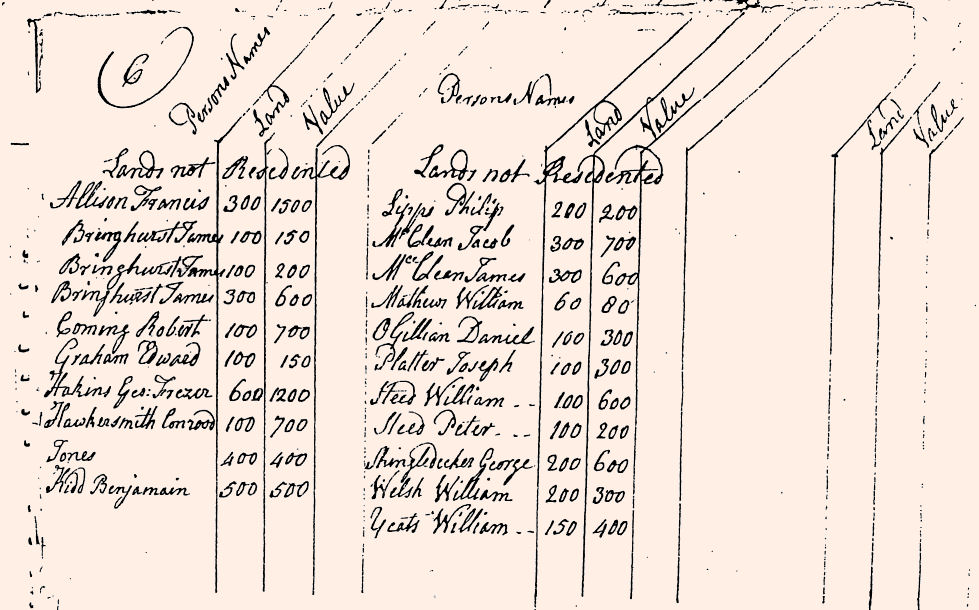 6
Persons Names Land Value
Lands not Residented
Allison Francis 300 1500
Bringhurst James 100 150
Bringhurst James 100 200
Bringhurst James 300 600
Coming Robert 100 700
Graham Edward 100 150
Hakins Geo: Frezer 600 1200
Hawkersmith Conrood 100 700
Jones 400 400
Kidd Benjamain 500 500
Persons Names Land Value
Lands not Residented
Lipps Philip 200 200
McClean Jacob 300 700
McClean James 300 600
Mathews William 60 80
OGillian Daniel 100 300
Platter Joseph 100 300
Steed William -- 100 600
Steed Peter -- 100 200
Shingledecker George 200 600
Welsh William 200 300
Yeats William -- 150 400
Land Value